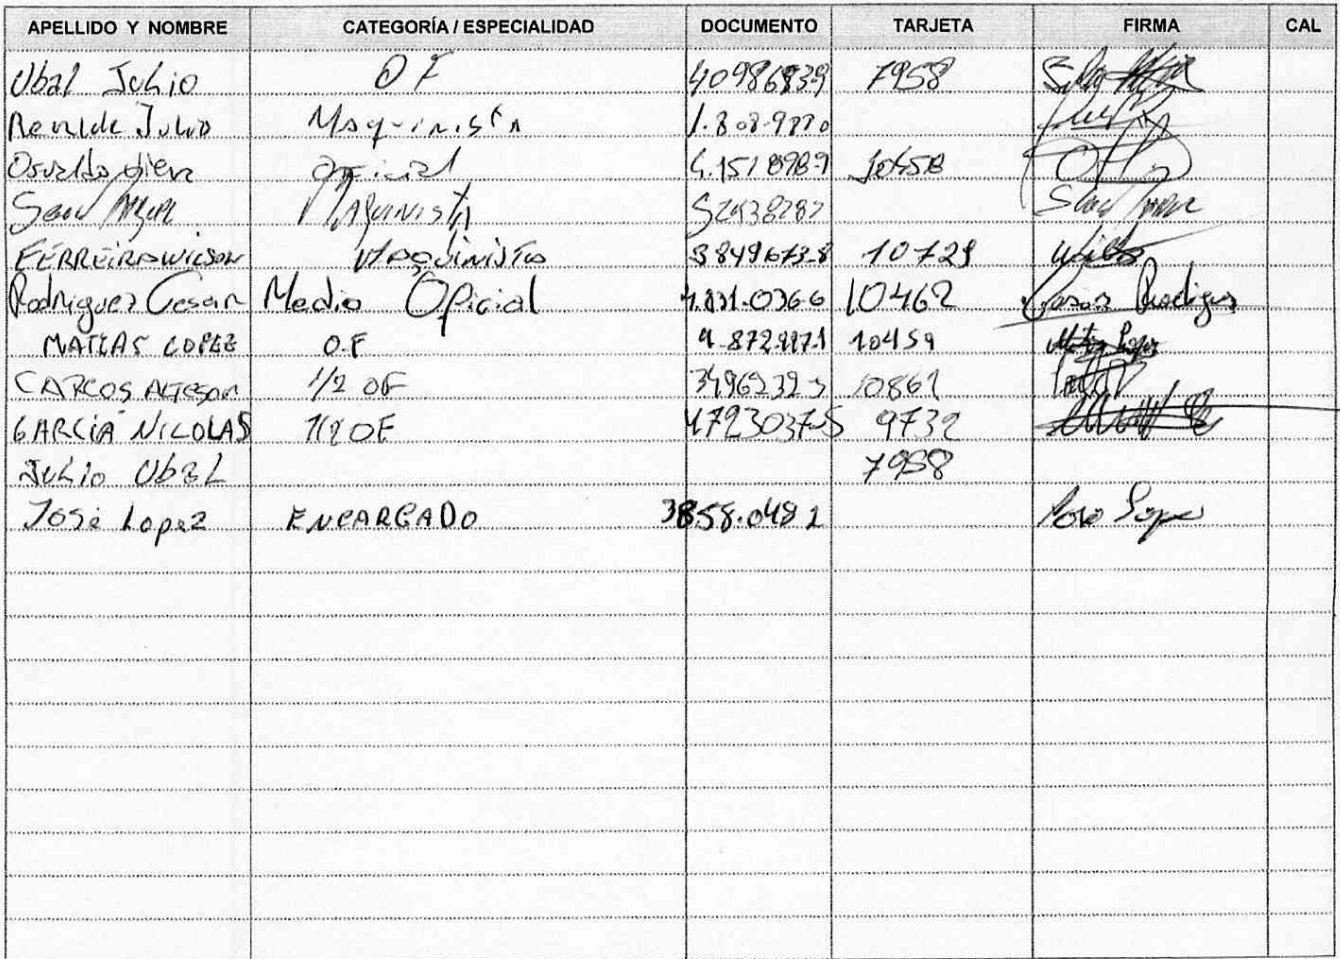 APELLIDO Y NOMBRE CATEGORÍA / ESPECIALIDAD DOCUMENTO TARJETA FIRMA CAL
Ubal Julio OF 40986839 7958
Julio Maquinista
Osvaldo oficial
Maquinista
FERREIRA WILSON Maquinista 3849673-8 10729
Rodriguez Cesar Medio Oficial 4.831.036-6 10462 Cesar Rodriguez
MATIAS LOPEZ O.F 10459 Matias Lopez
CARLOS ALTESOR 1/2 OF 3496232-5 10861
GARCIA NICOLAS 1/2 OF 4723037-5 9732
Julio Ubal 7958
José Lopez ENCARGADO 3858.048 2 Jose Lopez